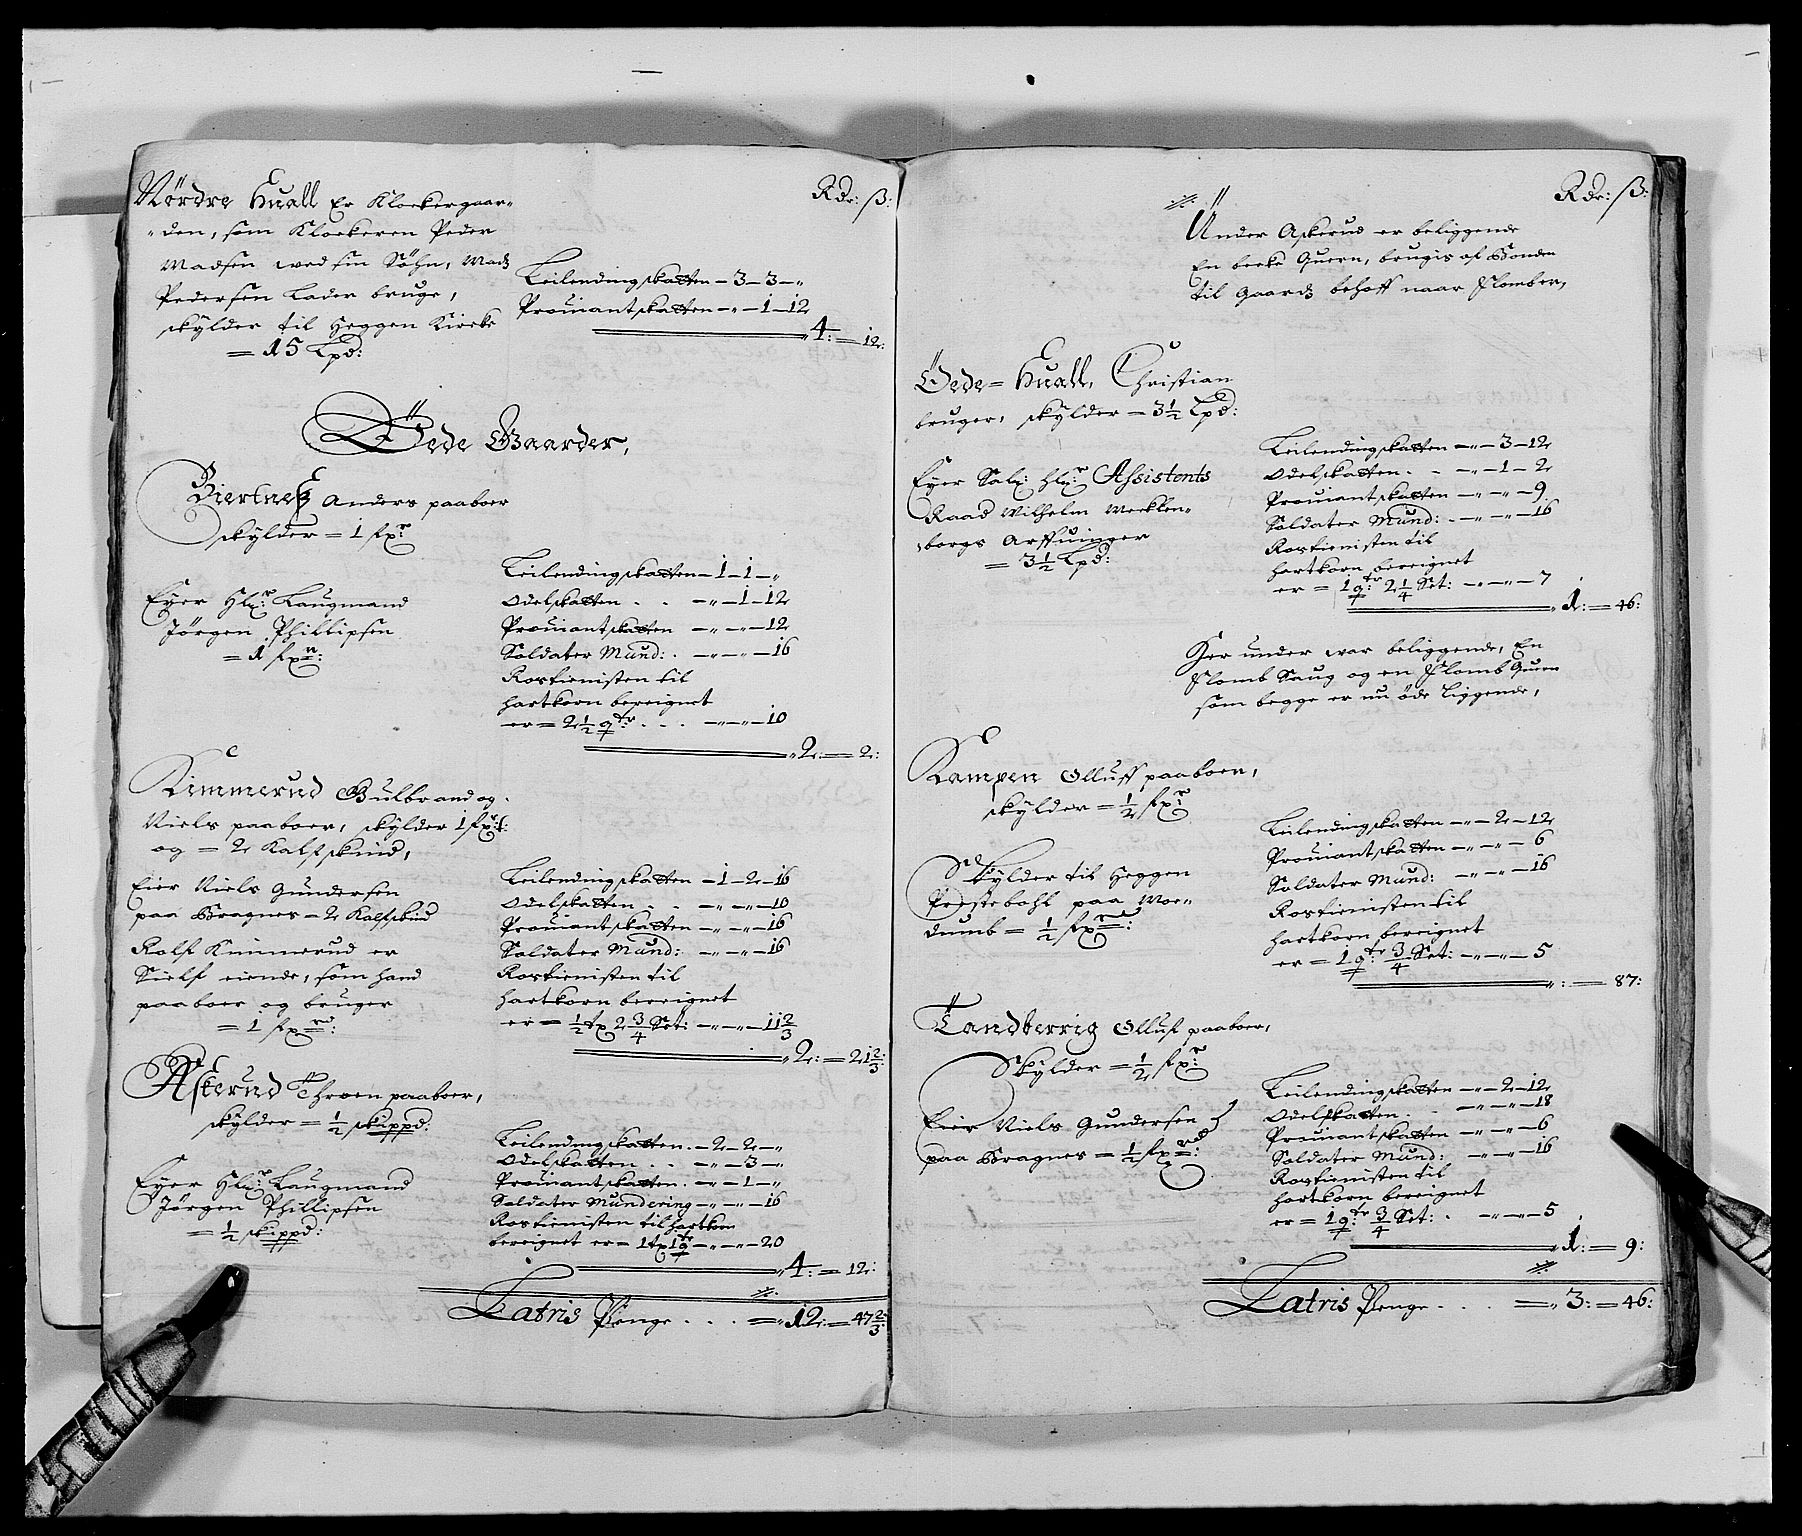 Rdr: ß:
Nördre Huall Er Klockergaar=
=den, som Klockeren Peder
Madsen med sin Söhn, Mads
Pedersen Lader bruge,
skylder til Heggen Kircke
= 15 Lpd:
Leilendingskatten – 3 – 3 – „
Prouiantskatten – „ – 1 – 12
„ 4: = 12:
Öede Gaarder,
Biertnes Anders paaboer
skylder = 1 fxr:
Eyer Hlr: Laugmand
Jörgen Phillipsen
= 1 fxn:
Leilendingskatten – 1 – 1 – „
Odelskatten . . – „ – 1 – 12
Prouiantskatten – „ – „ – 12
Soldater Mund: . – „ – „ – 16
Rostienisten til
hartkorn bereignet
er = 2 1/2 qtr: . . . – „ – „ – 10
„ 2: = 2:
Kimmerud Gulbrand og
Niels paaboer, skylder 1 fxr:
og = 2 Kalfskind,
Eier Niels Gundersen
paa Bragnes – 2 Kalfskind
Rolf Kimmerud er
Sielf eiende, som hand
paaboer og bruger
= 1 fxnd:
Leilendingskatten – 1 – 2 – 16
Odelskatten . . – „ – „ – 10
Prouiantskatten – „ – „ – 16
Soldater Mund: – „ – „ – 16
Rostienisten til
hartkorn bereignet
er = 1/2 tx 2 3/4 Set: – „ – „ – 11 2/3
„ 2: = 21 2/3:
Askerud Throen paaboer,
skylder = 1/2 skuppd:
Eyer Hlr: Laugmand
Jörgen Phillipsen
= 1/2 skuppd:
Leilendingskatten . – 2 – 2 – „
Odelskatten . . – „ – 3 – „
Prouiantskatten . – „ – 1 – „
Soldater Mundering – „ – „ – 16
Rostienisten til hartkorn
bereignet er = 1 tx 1 qtr – „ – „ – 20
„ 4: = 12:
Latris Penge . . . = „ 12: = 47 2/3:
Rdr: ß:
Under Askerud er beliggende
En becke Quern, brugis af Bonden
til Gaards behoff naar Flomber,
Öede = Huall, Christian
bruger, skylder = 3 1/2 Lpd:
Eyer Sal: Hlr: Assistents
Raad Wilhelm Mecklen=
borgs Arffuinger
= 3 1/2 Lpd:
Leilendingskatten – „ – 3 – 12
Odelskatten . . – „ – 1 – 2
Prouiantskatten – „ – „ – 9
Soldater Mund: . – „ – „ – 16
Rostienisten til
hartkorn bereignet
er = 1 qtr: 2 1/4 Set: – „ – „ – 7
„ 1: = 46:
Her under war beliggende, En
Flomb Saug og en Flomb Quern
som begge er nu öde liggende,
Kampen Olluff paaboen,
skylder = 1/2 fxr:
Skylder til Heggen
Prestebohl paa Moe=
dumb = 1/2 fxnd:
Leilendingskatten – „ – 2 – 12
Prouiantskatten – „ – „ – 6
Soldater Mund: – „ – „ – 16
Rostienisten til
hartkorn bereignet
er = 1 qtr: 3/4 Set: – „ – „ – 5
„: = 87:
Tandberrig Olluf paaboer,
Skylder = 1/2 fxr:
Eier Niels Gundersen
paa Bragnes = 1/2 fxnd:
Leilendingskatten – „ – 2 – 12
Odelskatten . . – „ – „ – 18
Prouiantskatten – „ – „ – 6
Soldater Mund: – „ – „ – 16
Rostienisten til
hartkorn bereignet
er = 1 qtr: 3/4 Set: . – „ – „ – 5
„ 1: = 9:
Latris Penge . . . = „ 3: = 46: